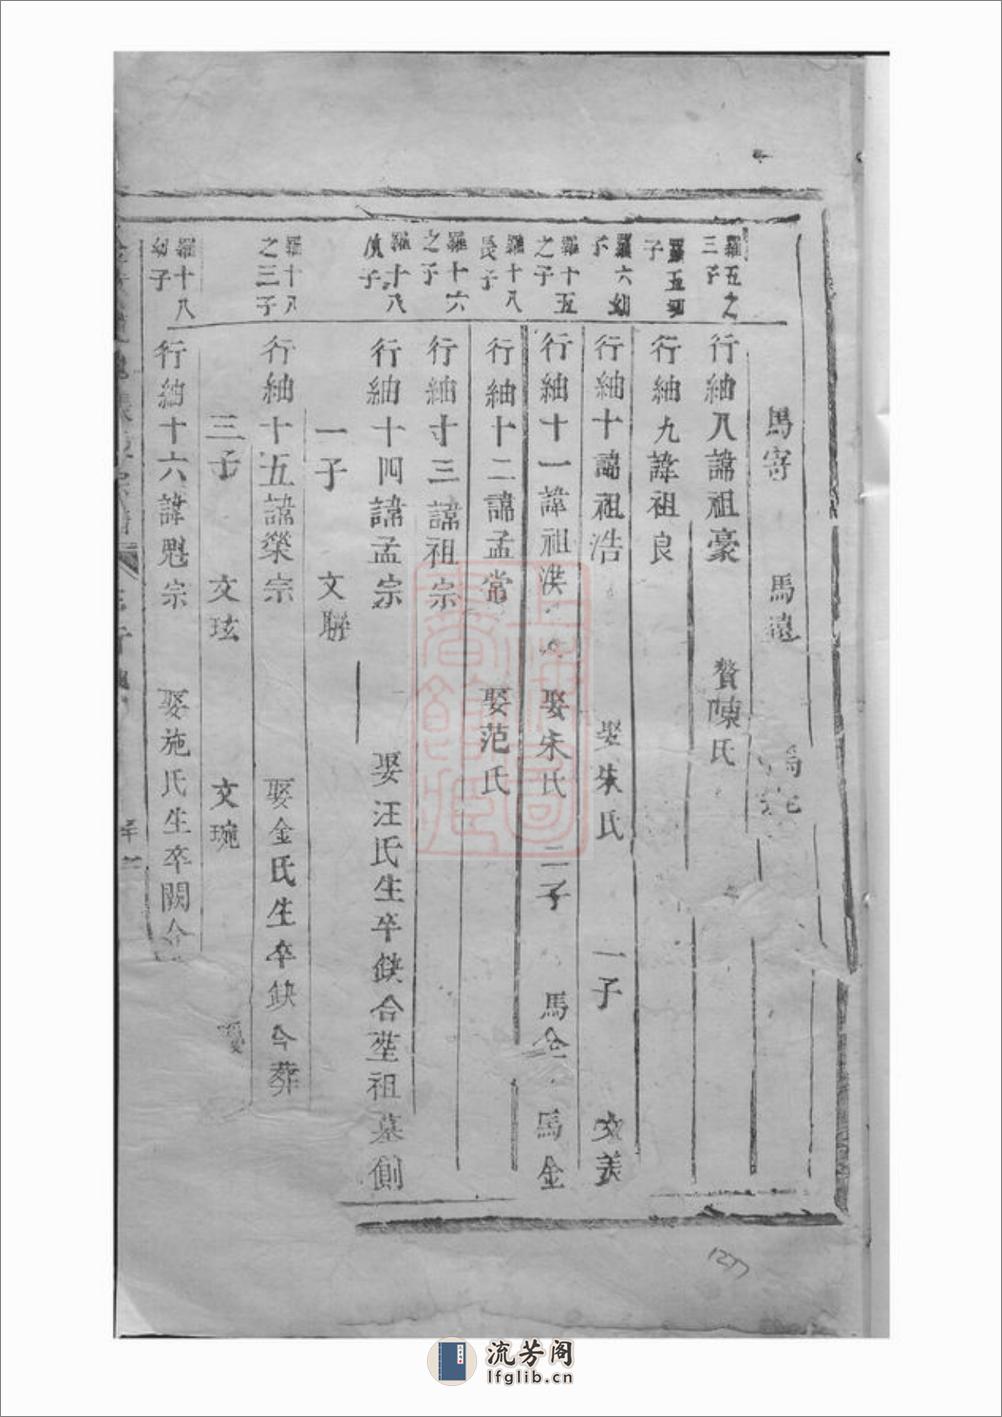 馬寄 馬遠
羅五之三子 行紬八諱祖豪 贅陳氏
羅五幼子 行紬九諱祖良
羅六幼子 行紬十諱祖浩 娶朱氏 一子 文美
羅十五之子 行紬十一諱祖洪 娶宋氏 二子 馬全 馬金
羅十八長子 行紬十二諱孟常 娶范氏
羅十六之子 行紬十三諱祖宗
羅十八次子 行紬十四諱孟宗 娶汪氏生卒缺合塟祖墓側
一子 文聯
羅十八之三子 行紬十五諱榮宗 娶金氏生卒缺今葬
三子 文玹 文琬
羅十八幼子 行紬十六諱魁宗 娶施氏生卒闕
上海圖書館藏
127
流芳阁
lfglib.cn